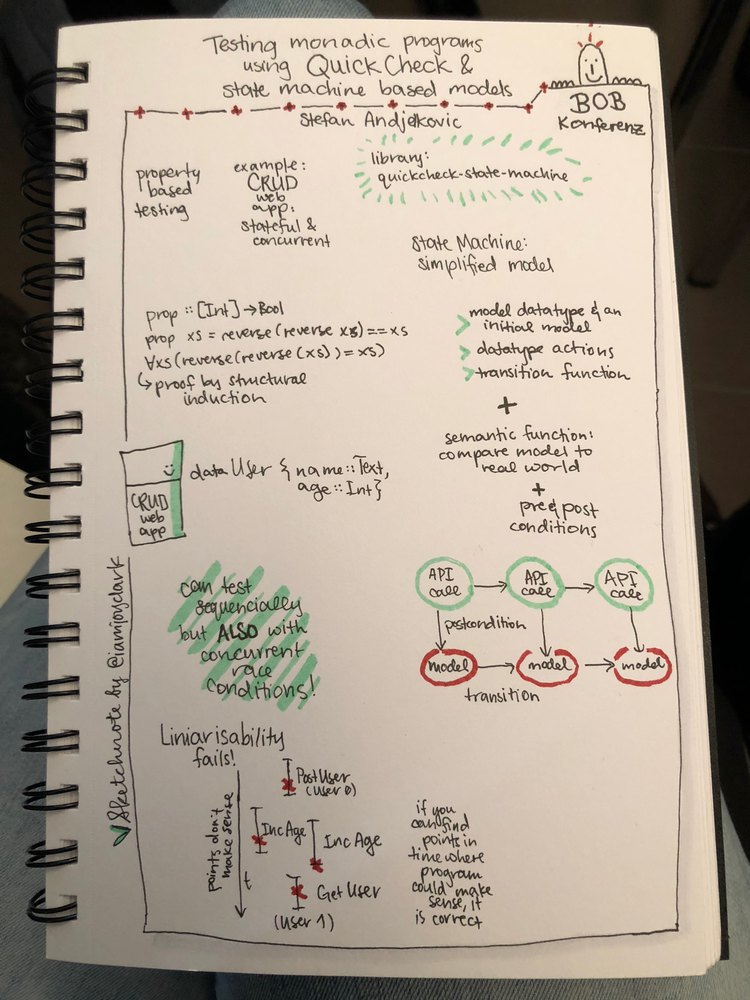 Testing monadic programs
using QuickCheck &
state machine based models
Stefan Andjelkovic
BOB
Konferenz
property
based
testing
example:
CRUD
web
app:
stateful &
concurrent
library:
quickcheck-state-machine
State Machine:
simplified model
prop :: [Int] → Bool
prop xs = reverse(reverse xs) == xs
∀xs(reverse(reverse(xs)) = xs)
↳ proof by structural
induction
> model datatype & an
initial model
> datatype actions
> transition function
+
semantic function:
compare model to
real world
+
pre & post
conditions
CRUD
web
app
data User { name :: Text,
age :: Int}
can test
sequencially
but ALSO with
concurrent
race
conditions!
API
call
API
call
API
call
postcondition
model
model
model
transition
Sketchnote by @iamjoyclark
Liniarisability
fails!
points don't
make sense
t
PostUser
(User 0)
IncAge
IncAge
GetUser
(User 1)
if you
can find
points in
time where
program
could make
sense, it
is correct